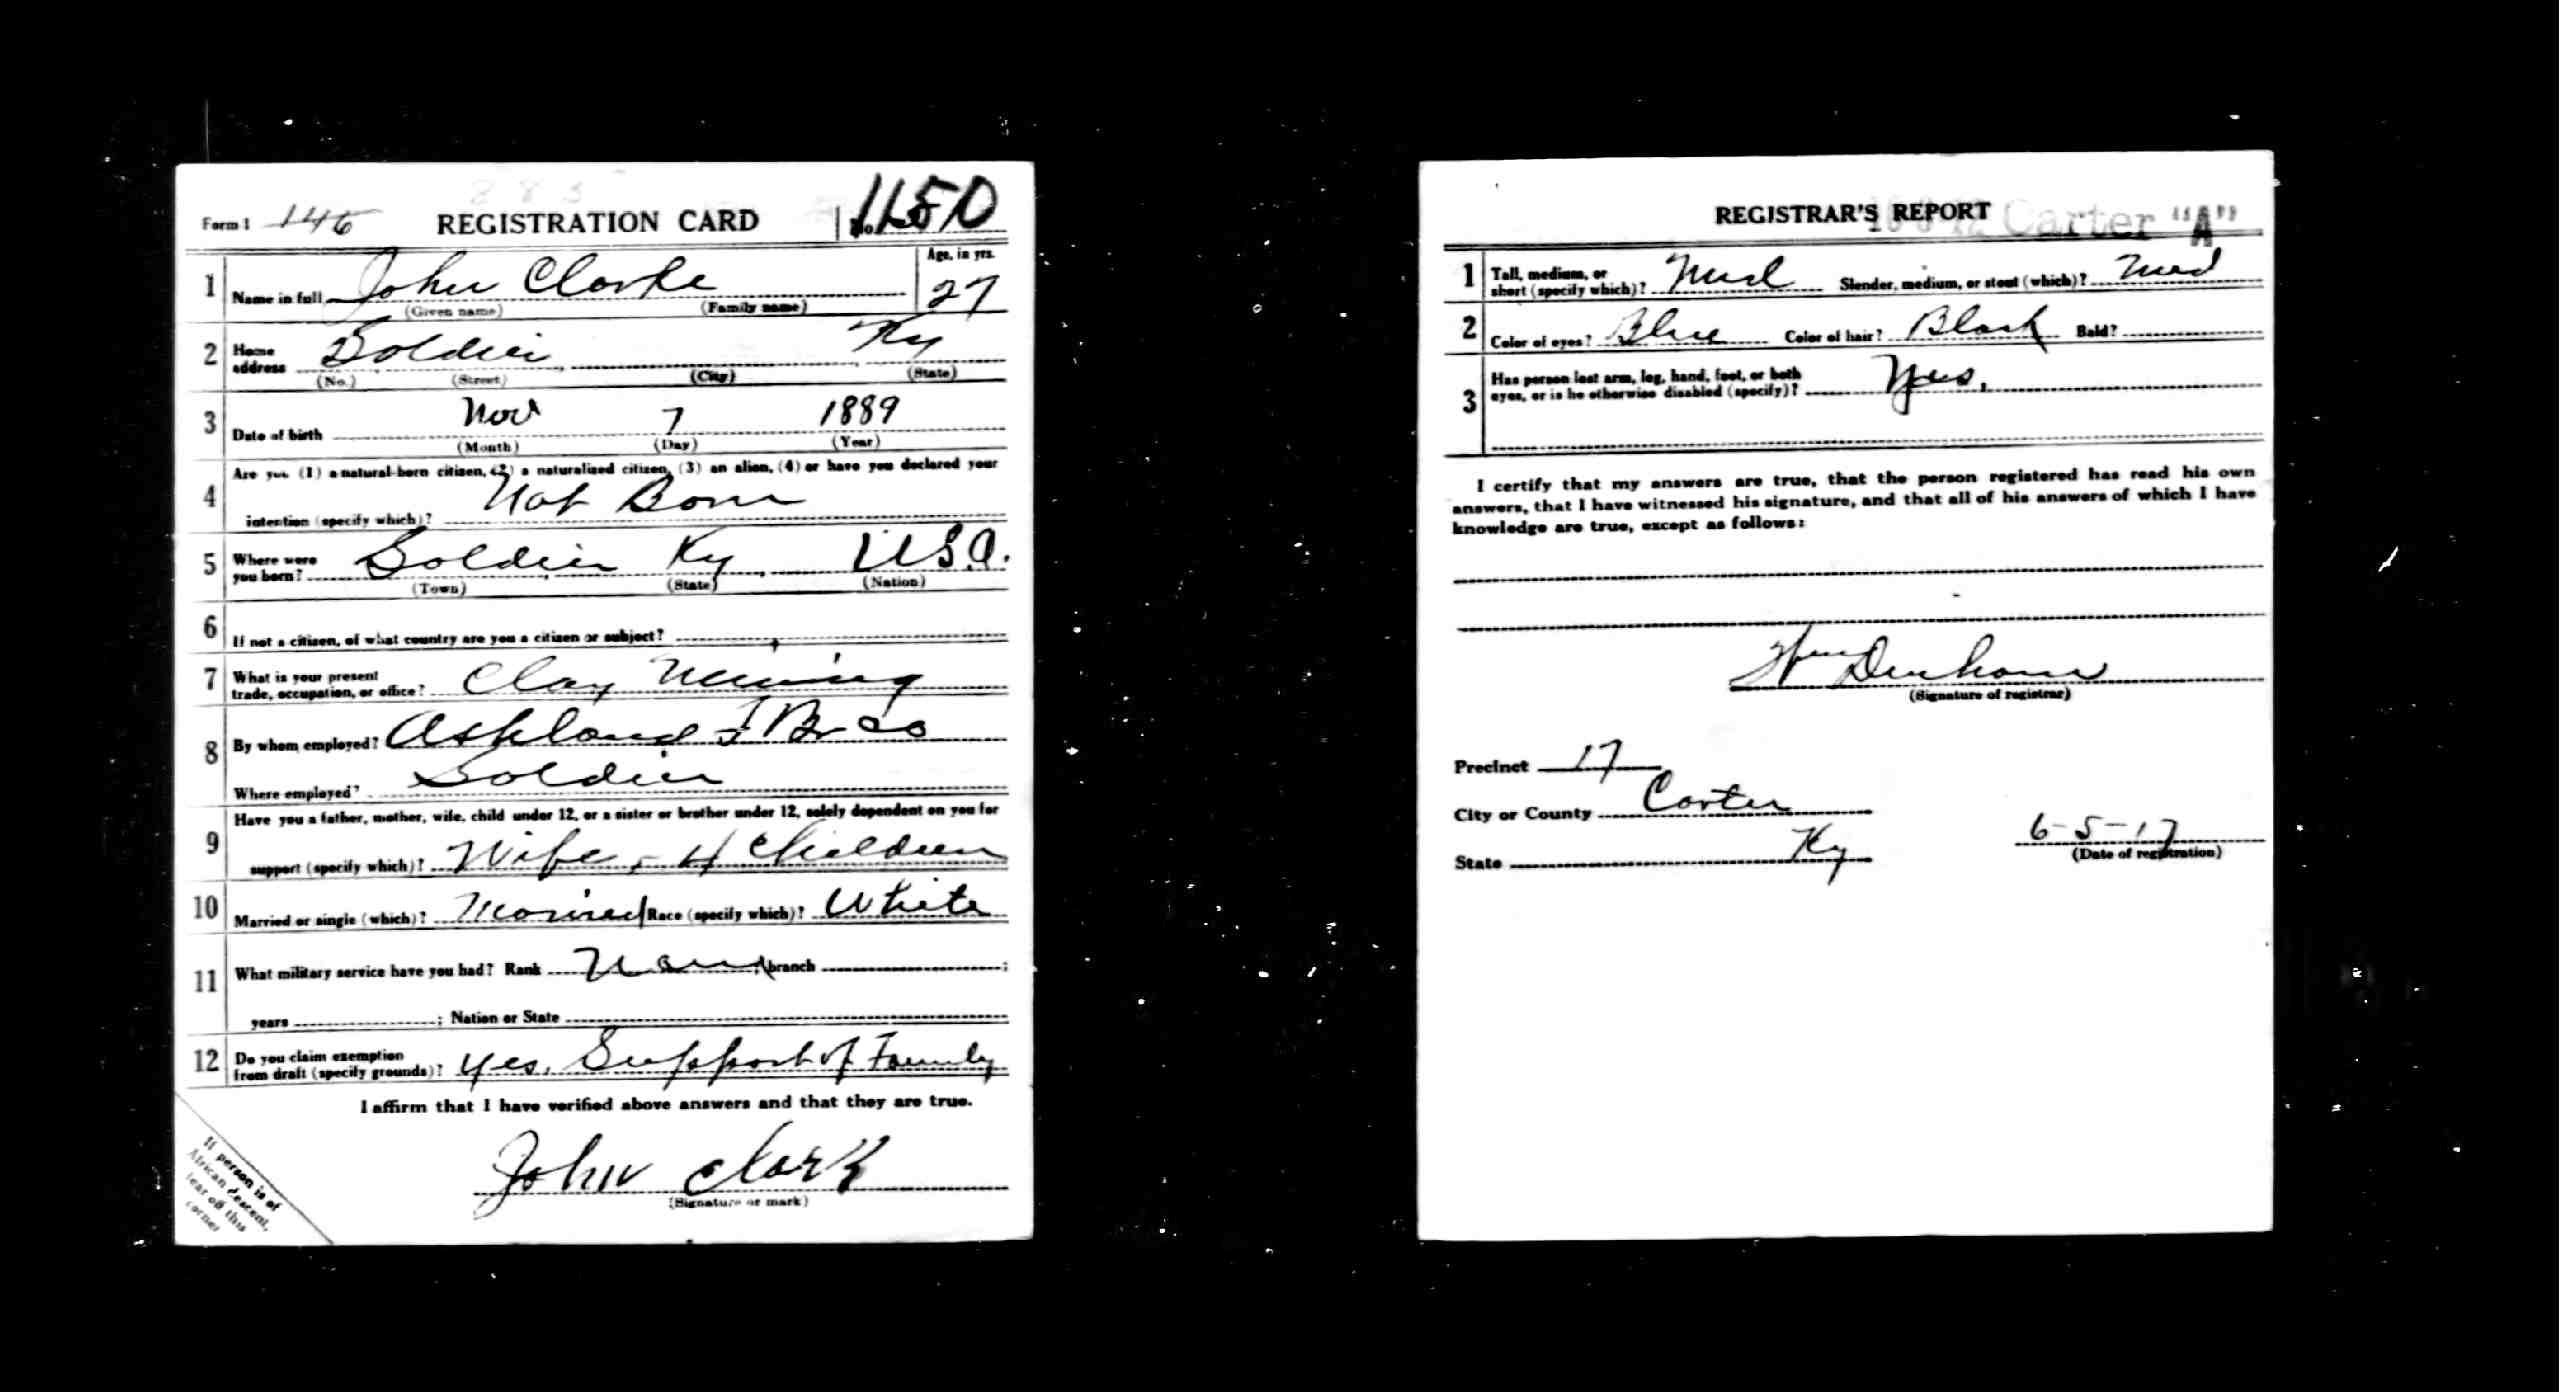 Form 1 146 REGISTRATION CARD No. 1150
1 Name in full John Clarke Age, in yrs. 27
(Given name) (Family name)
2 Home address Soldier Ky
(No.) (Street) (City) (State)
3 Date of birth Nov 7 1889
(Month) (Day) (Year)
4 Are you (1) a natural-born citizen, (2) a naturalized citizen, (3) an alien, (4) or have you declared your
intention (specify which)? Nat Born
5 Where were you born? Soldier Ky U.S.A.
(Town) (State) (Nation)
6 If not a citizen, of what country are you a citizen or subject?
7 What is your present trade, occupation, or office? Clay Mining
8 By whom employed? Ashland F Br Co
Where employed? Soldier
9 Have you a father, mother, wife, child under 12, or a sister or brother under 12, solely dependent on you for
support (specify which)? Wife, 4 Children
10 Married or single (which)? Married Race (specify which)? White
11 What military service have you had? Rank None branch ;
years ; Nation or State
12 Do you claim exemption from draft (specify grounds)? Yes, Support of Family
I affirm that I have verified above answers and that they are true.
John Clark
(Signature or mark)
If person is of
African descent,
tear off this
corner
REGISTRAR'S REPORT Carter "A"
1 Tall, medium, or short (specify which)? Med Slender, medium, or stout (which)? Med
2 Color of eyes? Blue Color of hair? Black Bald?
3 Has person lost arm, leg, hand, foot, or both
eyes, or is he otherwise disabled (specify)? Yes.
I certify that my answers are true, that the person registered has read his own
answers, that I have witnessed his signature, and that all of his answers of which I have
knowledge are true, except as follows:
Wm Denham
(Signature of registrar)
Precinct 17
City or County Carter
State Ky 6-5-17
(Date of registration)